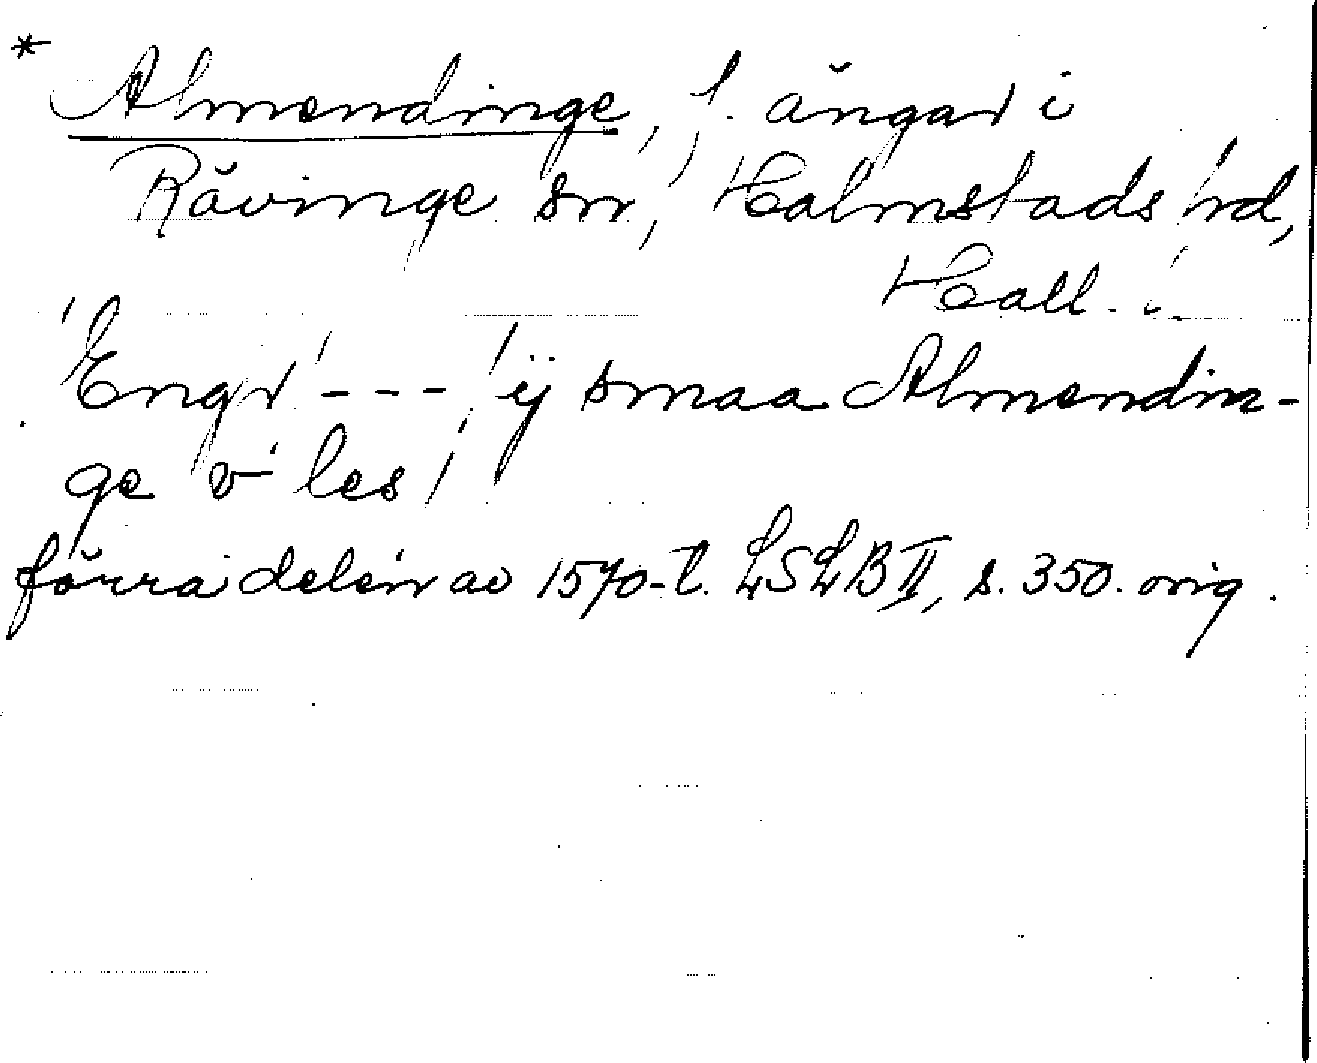 * Almendinge, f. ängar i
Rävinge sn, Halmstads hd,
Hall.
Engr --- ij smaa Almendin-
ge v les
förra delen av 1570-t. LSLB II, s. 350. orig.